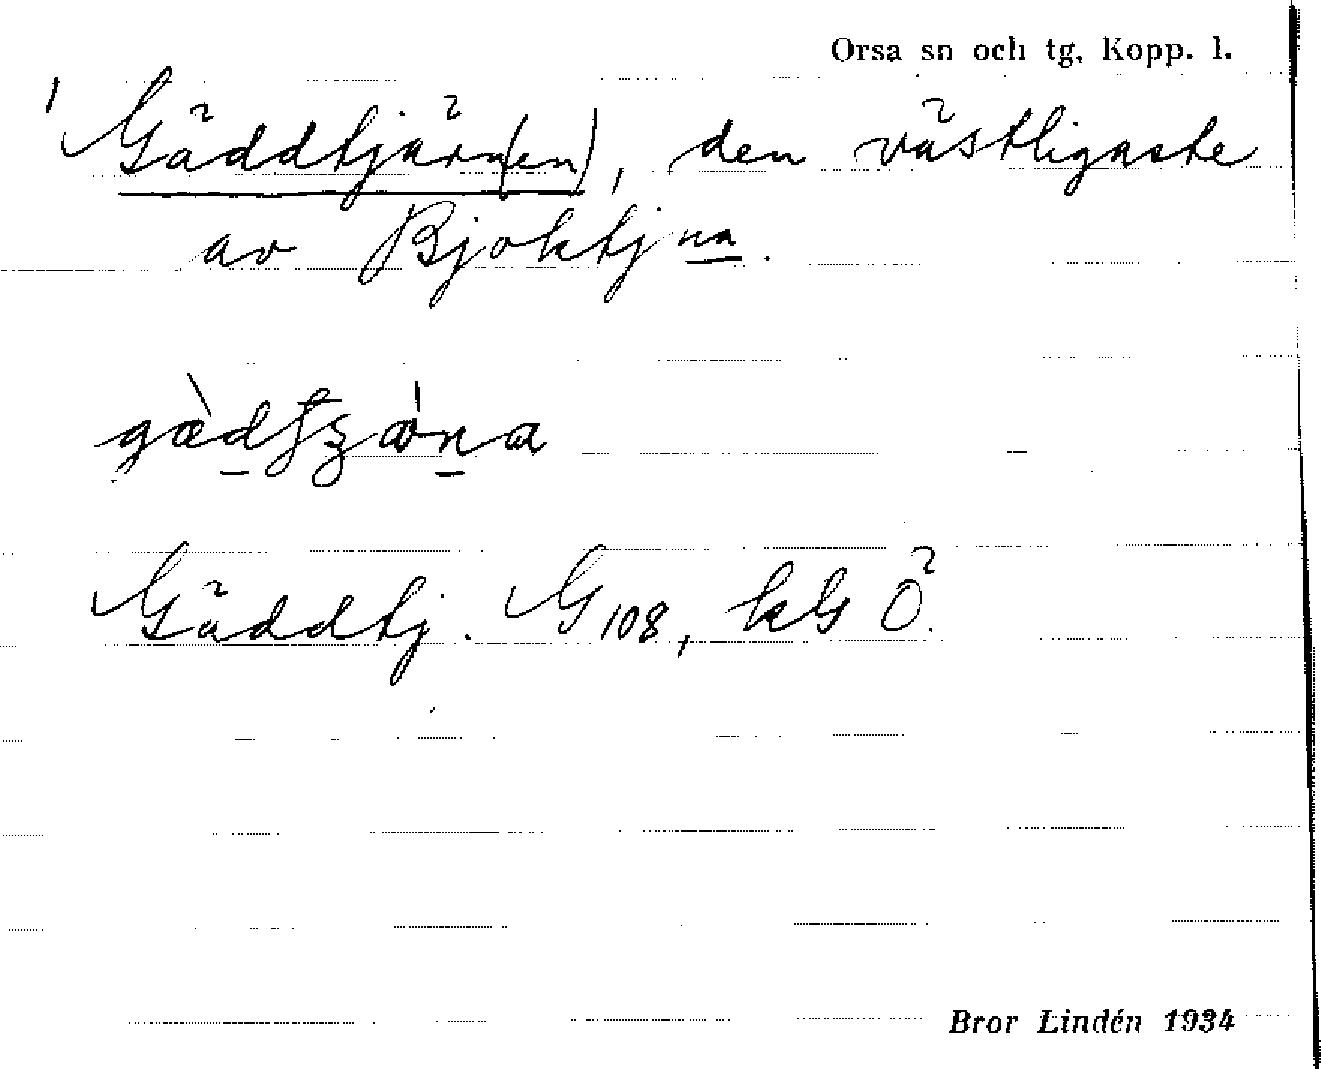 Orsa sn och tg, Kopp. l.
Gäddtjärn(en), den västligaste
av Bjoktjna.
Gäddtj. G108, kG Ö.
Bror Lindén 1934